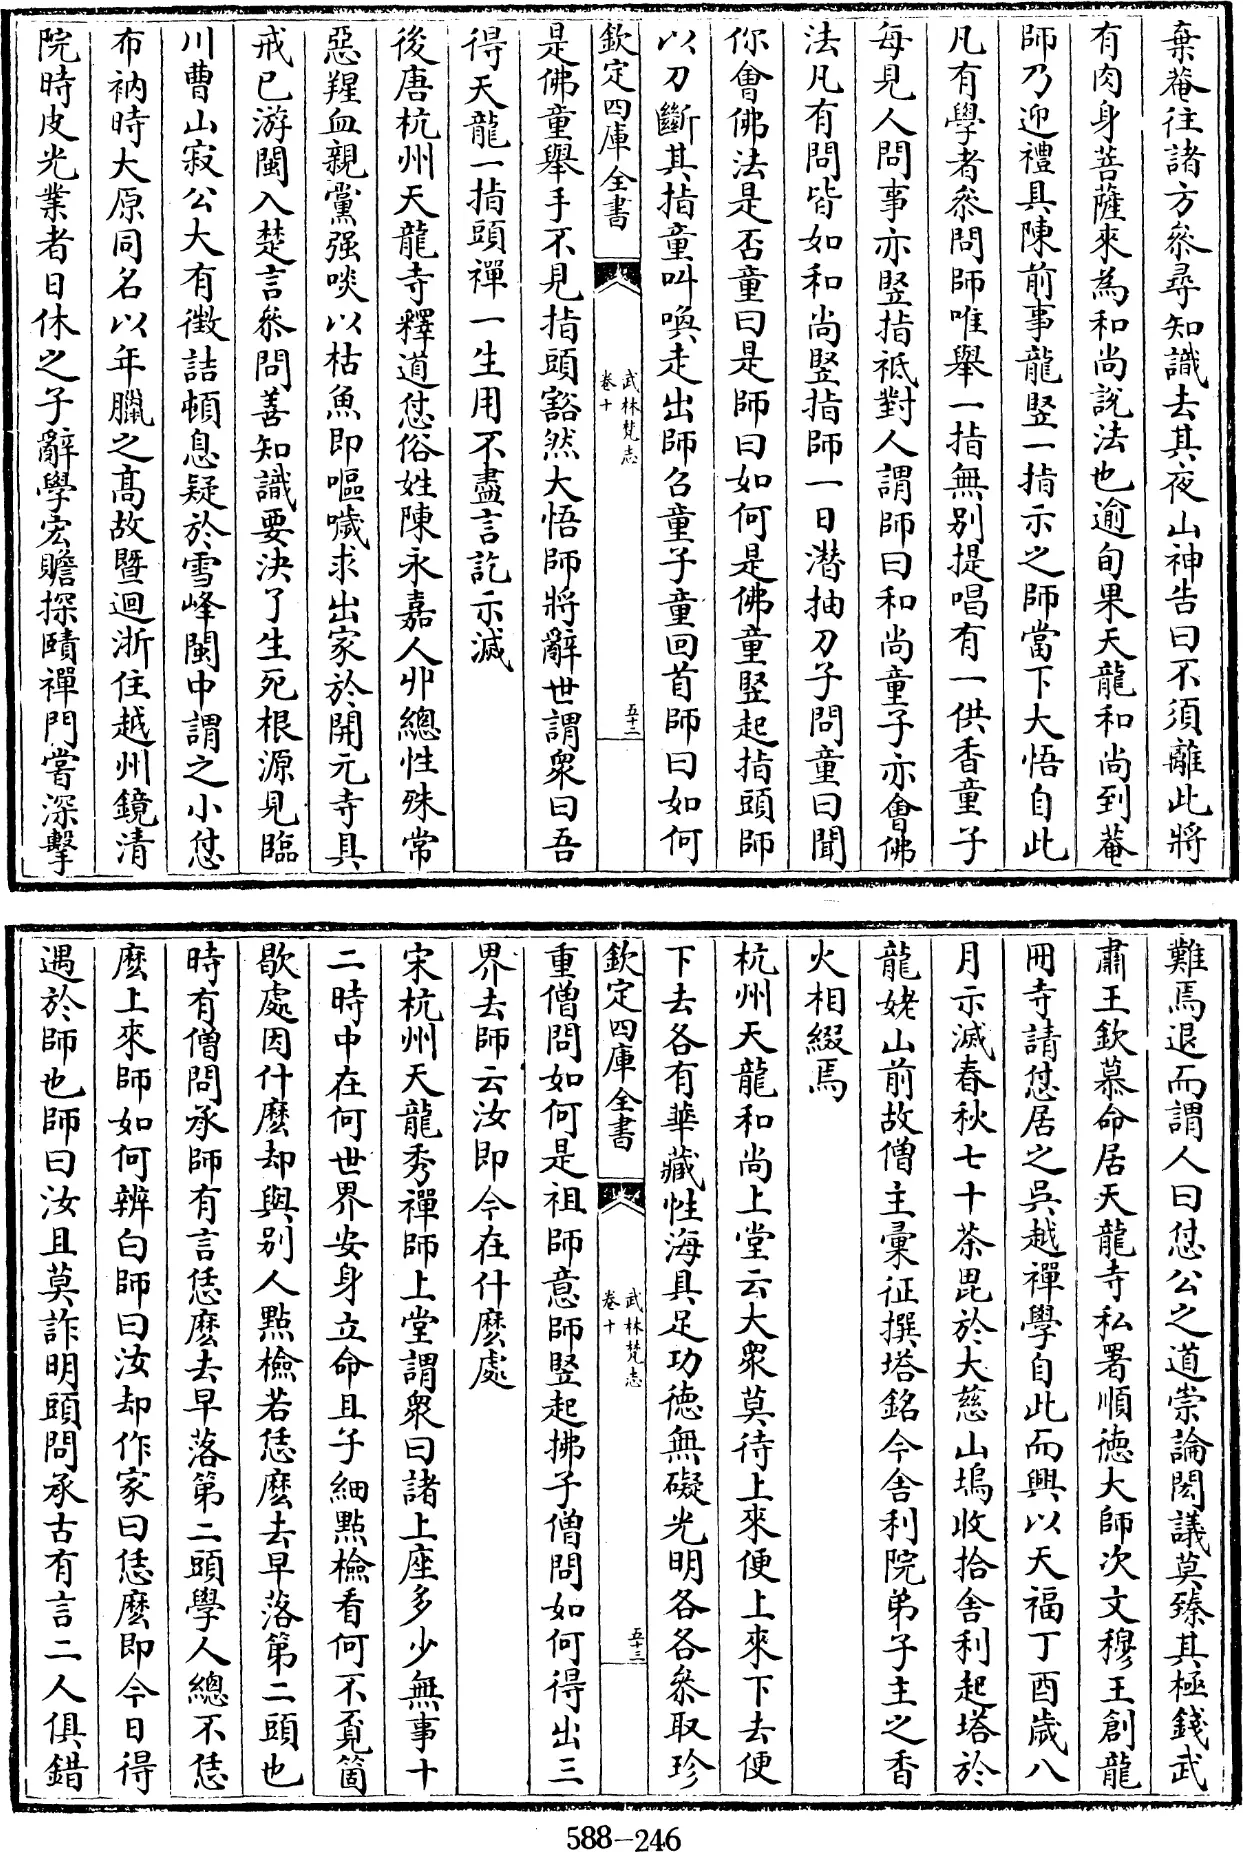 棄菴往諸方叅尋知識去其夜山神告曰不須離此將
有肉身菩薩來為和尚說法也逾旬果天龍和尚到菴
師乃迎禮具陳前事龍竪一指示之師當下大悟自此
凡有學者叅問師唯舉一指無别提唱有一供香童子
每見人問事亦竪指祗對人謂師曰和尚童子亦會佛
法凡有問皆如和尚竪指師一日潛抽刀子問童曰聞
你會佛法是否童曰是師曰如何是佛童竪起指頭師
以刀斷其指童叫喚走出師召童子童回首師曰如何
欽定四庫全書
武林梵志
卷十
五十二
是佛童舉手不見指頭豁然大悟師將辭世謂衆曰吾
得天龍一指頭禪一生用不盡言訖示滅
後唐杭州天龍寺釋道怤俗姓陳永嘉人丱總性殊常
惡羶血親黨强啖以枯魚即嘔噦求出家於開元寺具
戒已游閩入楚言叅問善知識要決了生死根源見臨
川曹山寂公大有徵詰頓息疑於雪峰閩中謂之小怤
布衲時大原同名以年臘之高故暨迴浙住越州鏡清
院時皮光業者日休之子辭學宏贍探賾禪門嘗深擊
難焉退而謂人曰怤公之道崇論閎議莫臻其極錢武
肅王欽慕命居天龍寺私署順徳大師次文穆王創龍
冊寺請怤居之吳越禪學自此而興以天福丁酉歲八
月示滅春秋七十茶毘於大慈山塢收拾舍利起塔於
龍姥山前故僧主彚征撰塔銘今舍利院弟子主之香
火相綴焉
杭州天龍和尚上堂云大衆莫待上來便上來下去便
下去各有華藏性海具足功徳無礙光明各各叅取珍
欽定四庫全書
武林梵志
卷十
五十三
重僧問如何是祖師意師竪起拂子僧問如何得出三
界去師云汝即今在什麽處
宋杭州天龍秀禪師上堂謂衆曰諸上座多少無事十
二時中在何世界安身立命且子細點檢看何不覓箇
歇處因什麽却與别人點檢若恁麽去早落第二頭也
時有僧問承師有言恁麽去早落第二頭學人總不恁
麽上來師如何辨白師曰汝却作家曰恁麽即今日得
遇於師也師曰汝且莫詐明頭問承古有言二人俱錯
588-246